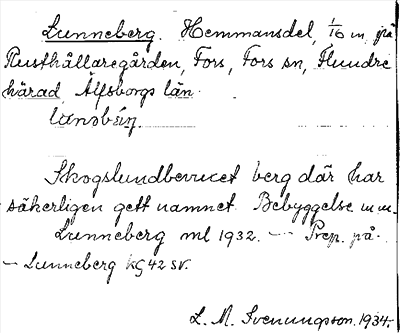 Lunneberg. Hemmansdel, 1/6 m. på
Rusthållaregården, Fors, Fors sn, Flundre
härad, Älfsborgs län.
Skogslundbevuxet berg där har
säkerligen gett namnet. Bebyggelse m.m.
Lunneberg ml 1932. — Prep. på.
— Lunneberg kg 42 SV.
L. M. Svenungsson. 1934.